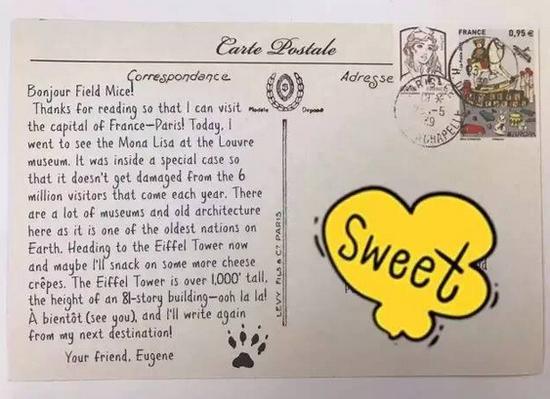 Carte Postale
Correspondance
Adresse
FRANCE
0,95 €
Bonjour Field Mice!
Thanks for reading so that I can visit
the capital of France—Paris! Today, I
went to see the Mona Lisa at the Louvre
museum. It was inside a special case so
that it doesn't get damaged from the 6
million visitors that come each year. There
are a lot of museums and old architecture
here as it is one of the oldest nations on
Earth. Heading to the Eiffel Tower now
and maybe I'll snack on some more cheese
crêpes. The Eiffel Tower is over 1,000' tall,
the height of an 81-story building—ooh la la!
À bientôt (see you), and I'll write again
from my next destination!
Your friend, Eugene
Modèle
Déposé
LEVY FILS & Cº PARIS
Sweet